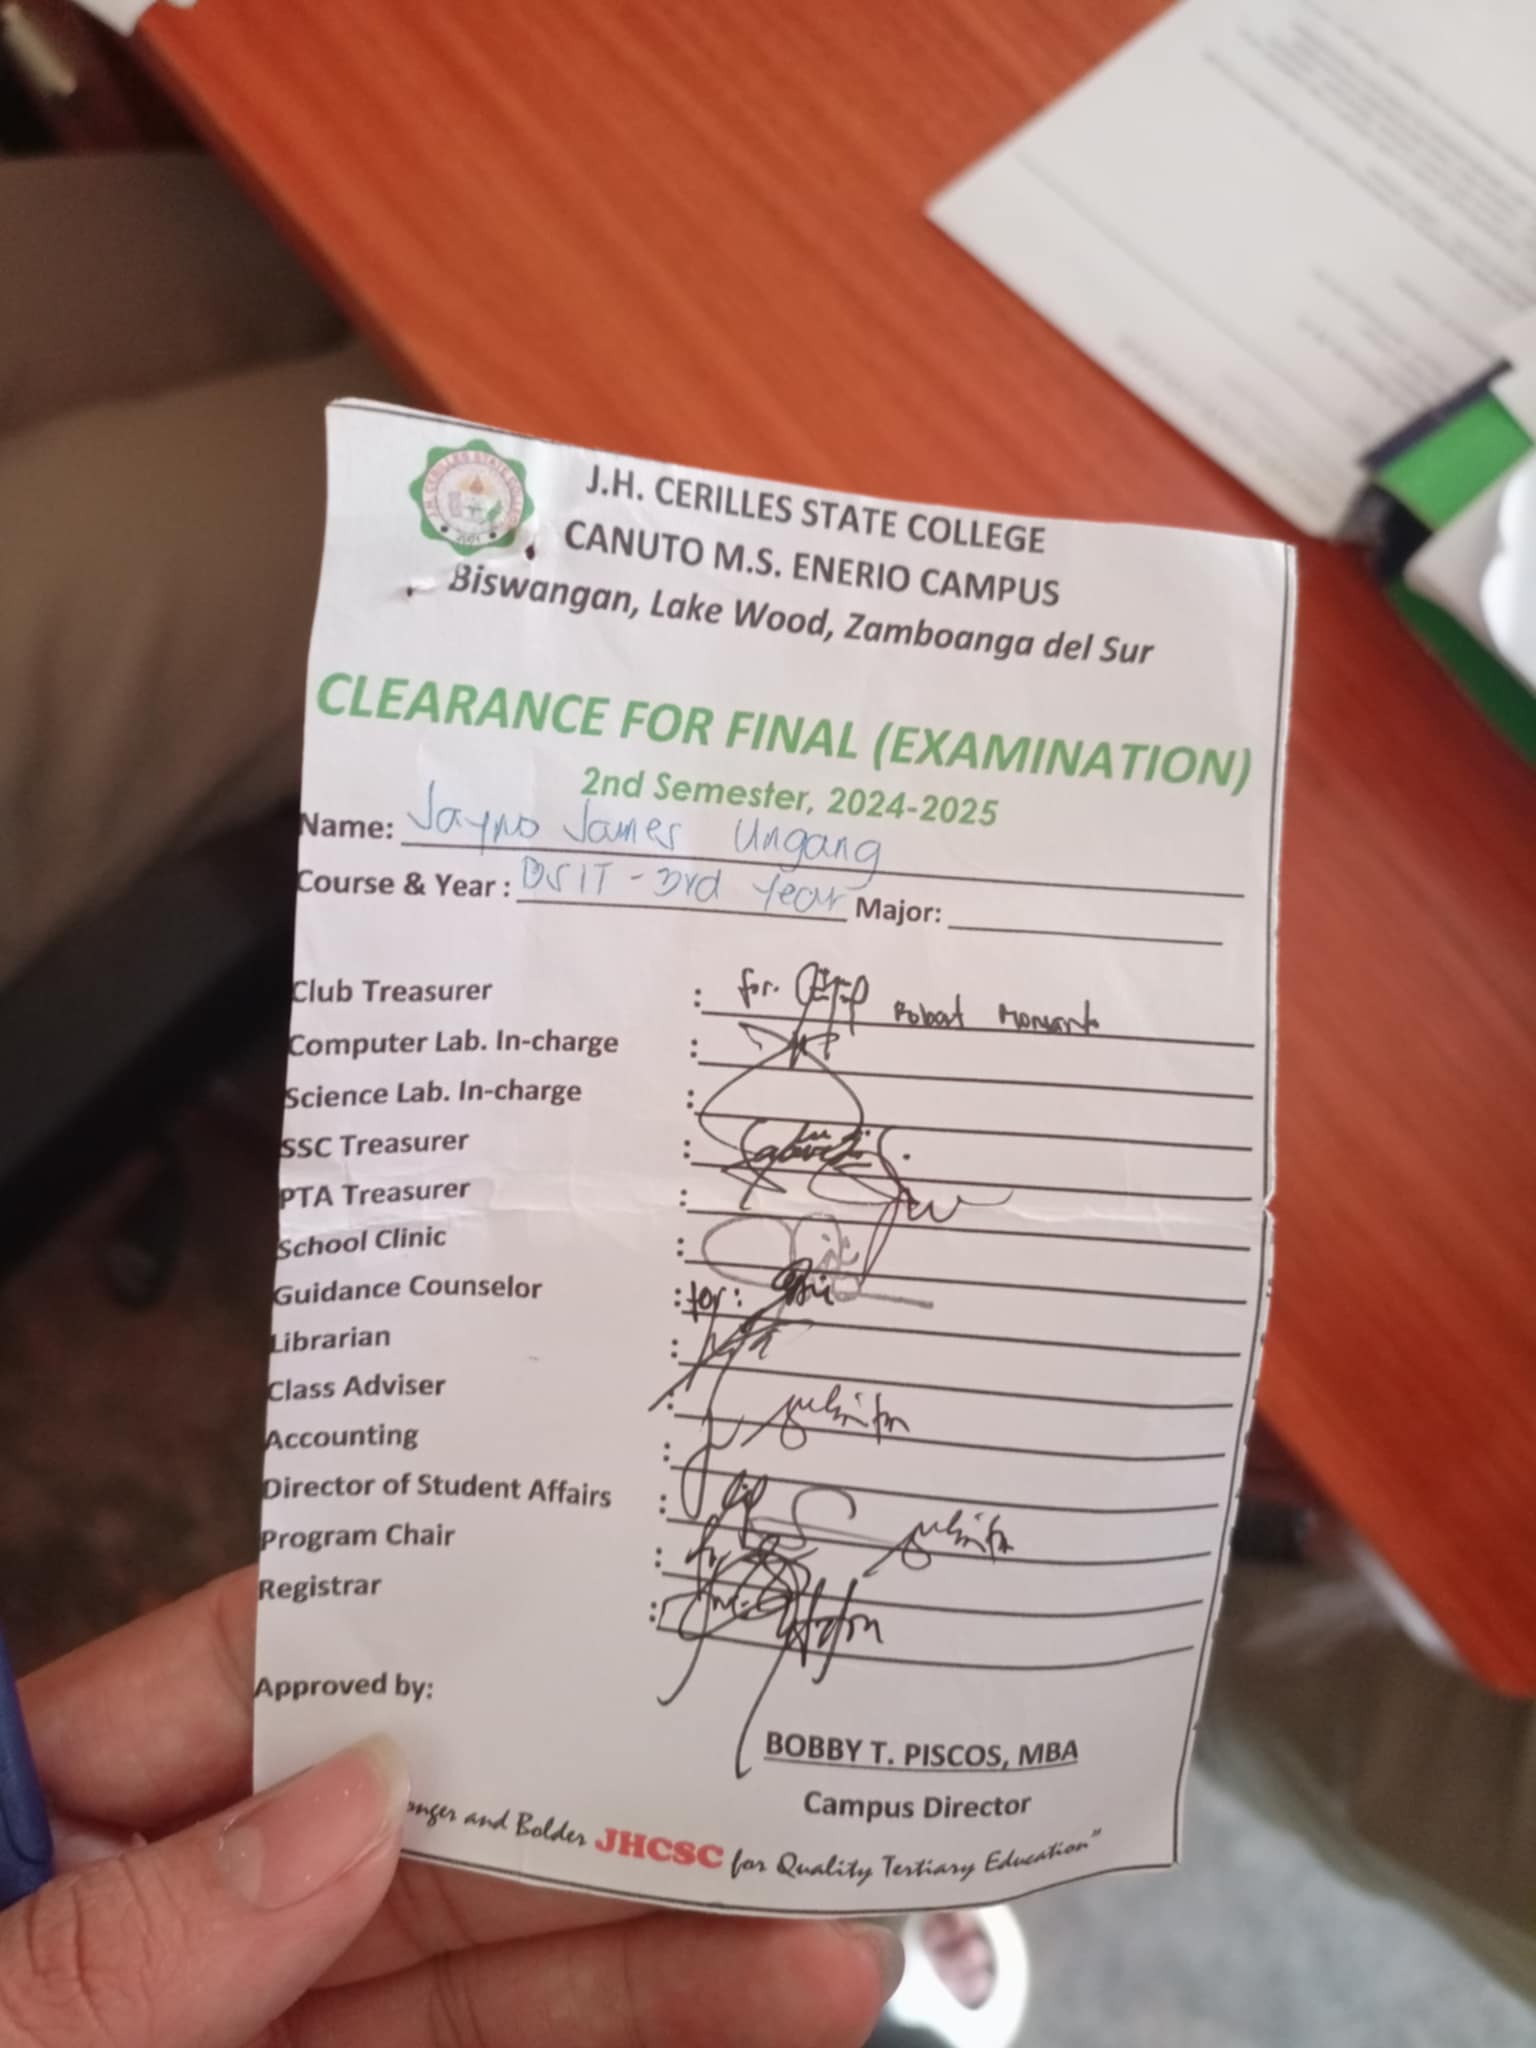 J.H. CERILLES STATE COLLEGE
CANUTO M.S. ENERIO CAMPUS
Biswangan, Lake Wood, Zamboanga del Sur
CLEARANCE FOR FINAL (EXAMINATION)
2nd Semester, 2024-2025
Name: James Ungang
Course & Year : BSIT - 3rd Year Major:
Club Treasurer : for. Robert
Computer Lab. In-charge :
Science Lab. In-charge :
SSC Treasurer :
PTA Treasurer :
School Clinic :
Guidance Counselor : for:
Librarian :
Class Adviser :
Accounting :
Director of Student Affairs :
Program Chair :
Registrar :
Approved by:
BOBBY T. PISCOS, MBA
Campus Director
and Bolder JHCSC for Quality Tertiary Education"